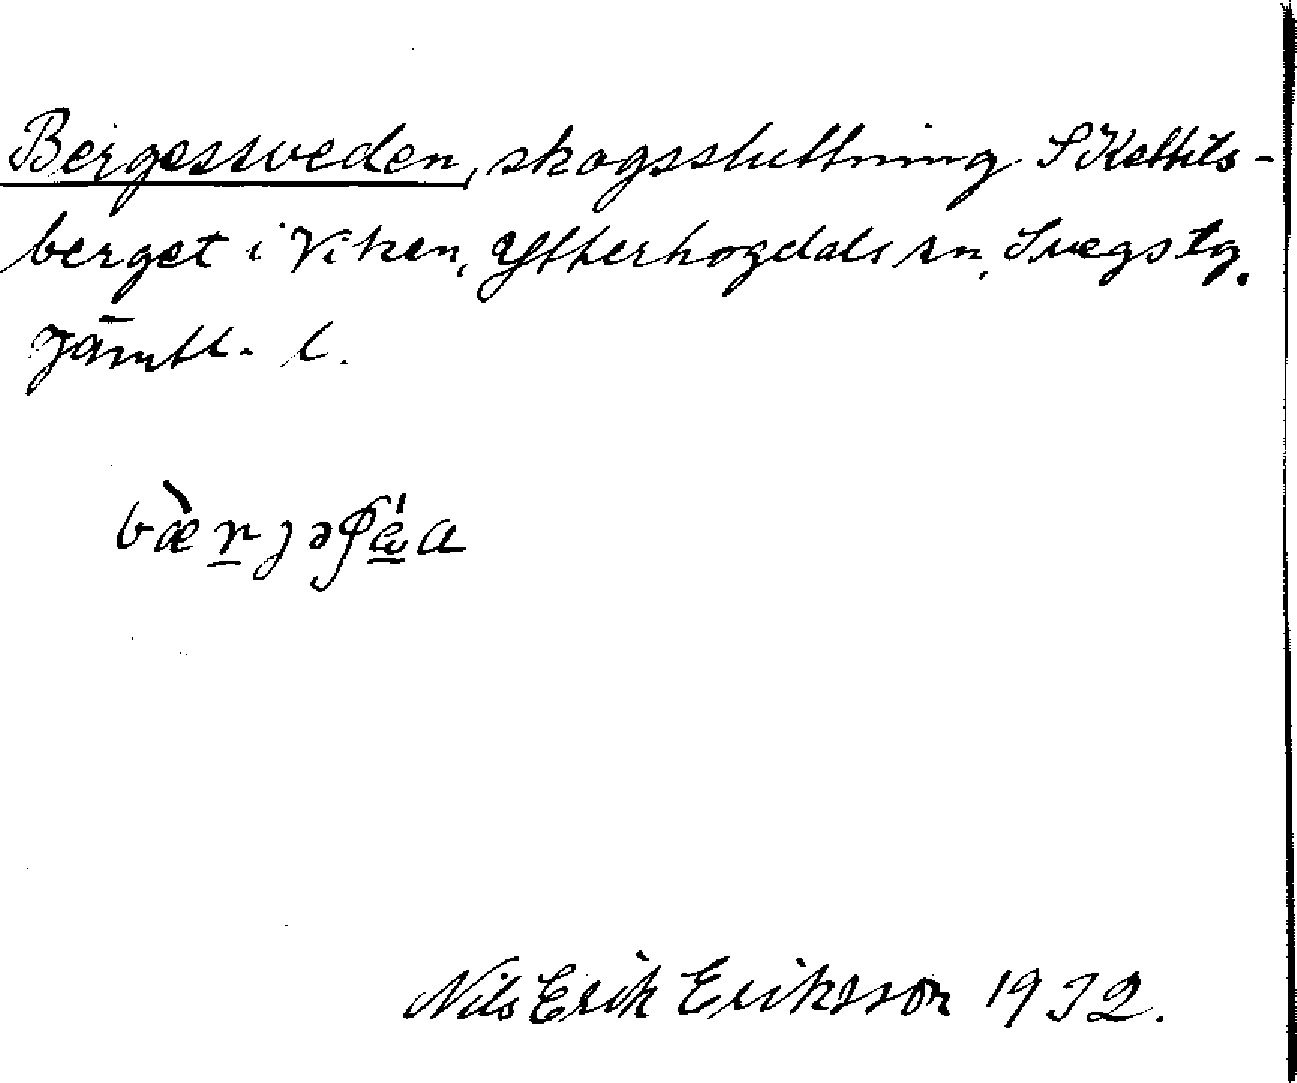 Bergessveden, skogssluttning S Kettils-
berget i Viken, Ytterhogdals sn, Svegs tg.
Jämtl. l.
Nils Erik Eriksson 1932.